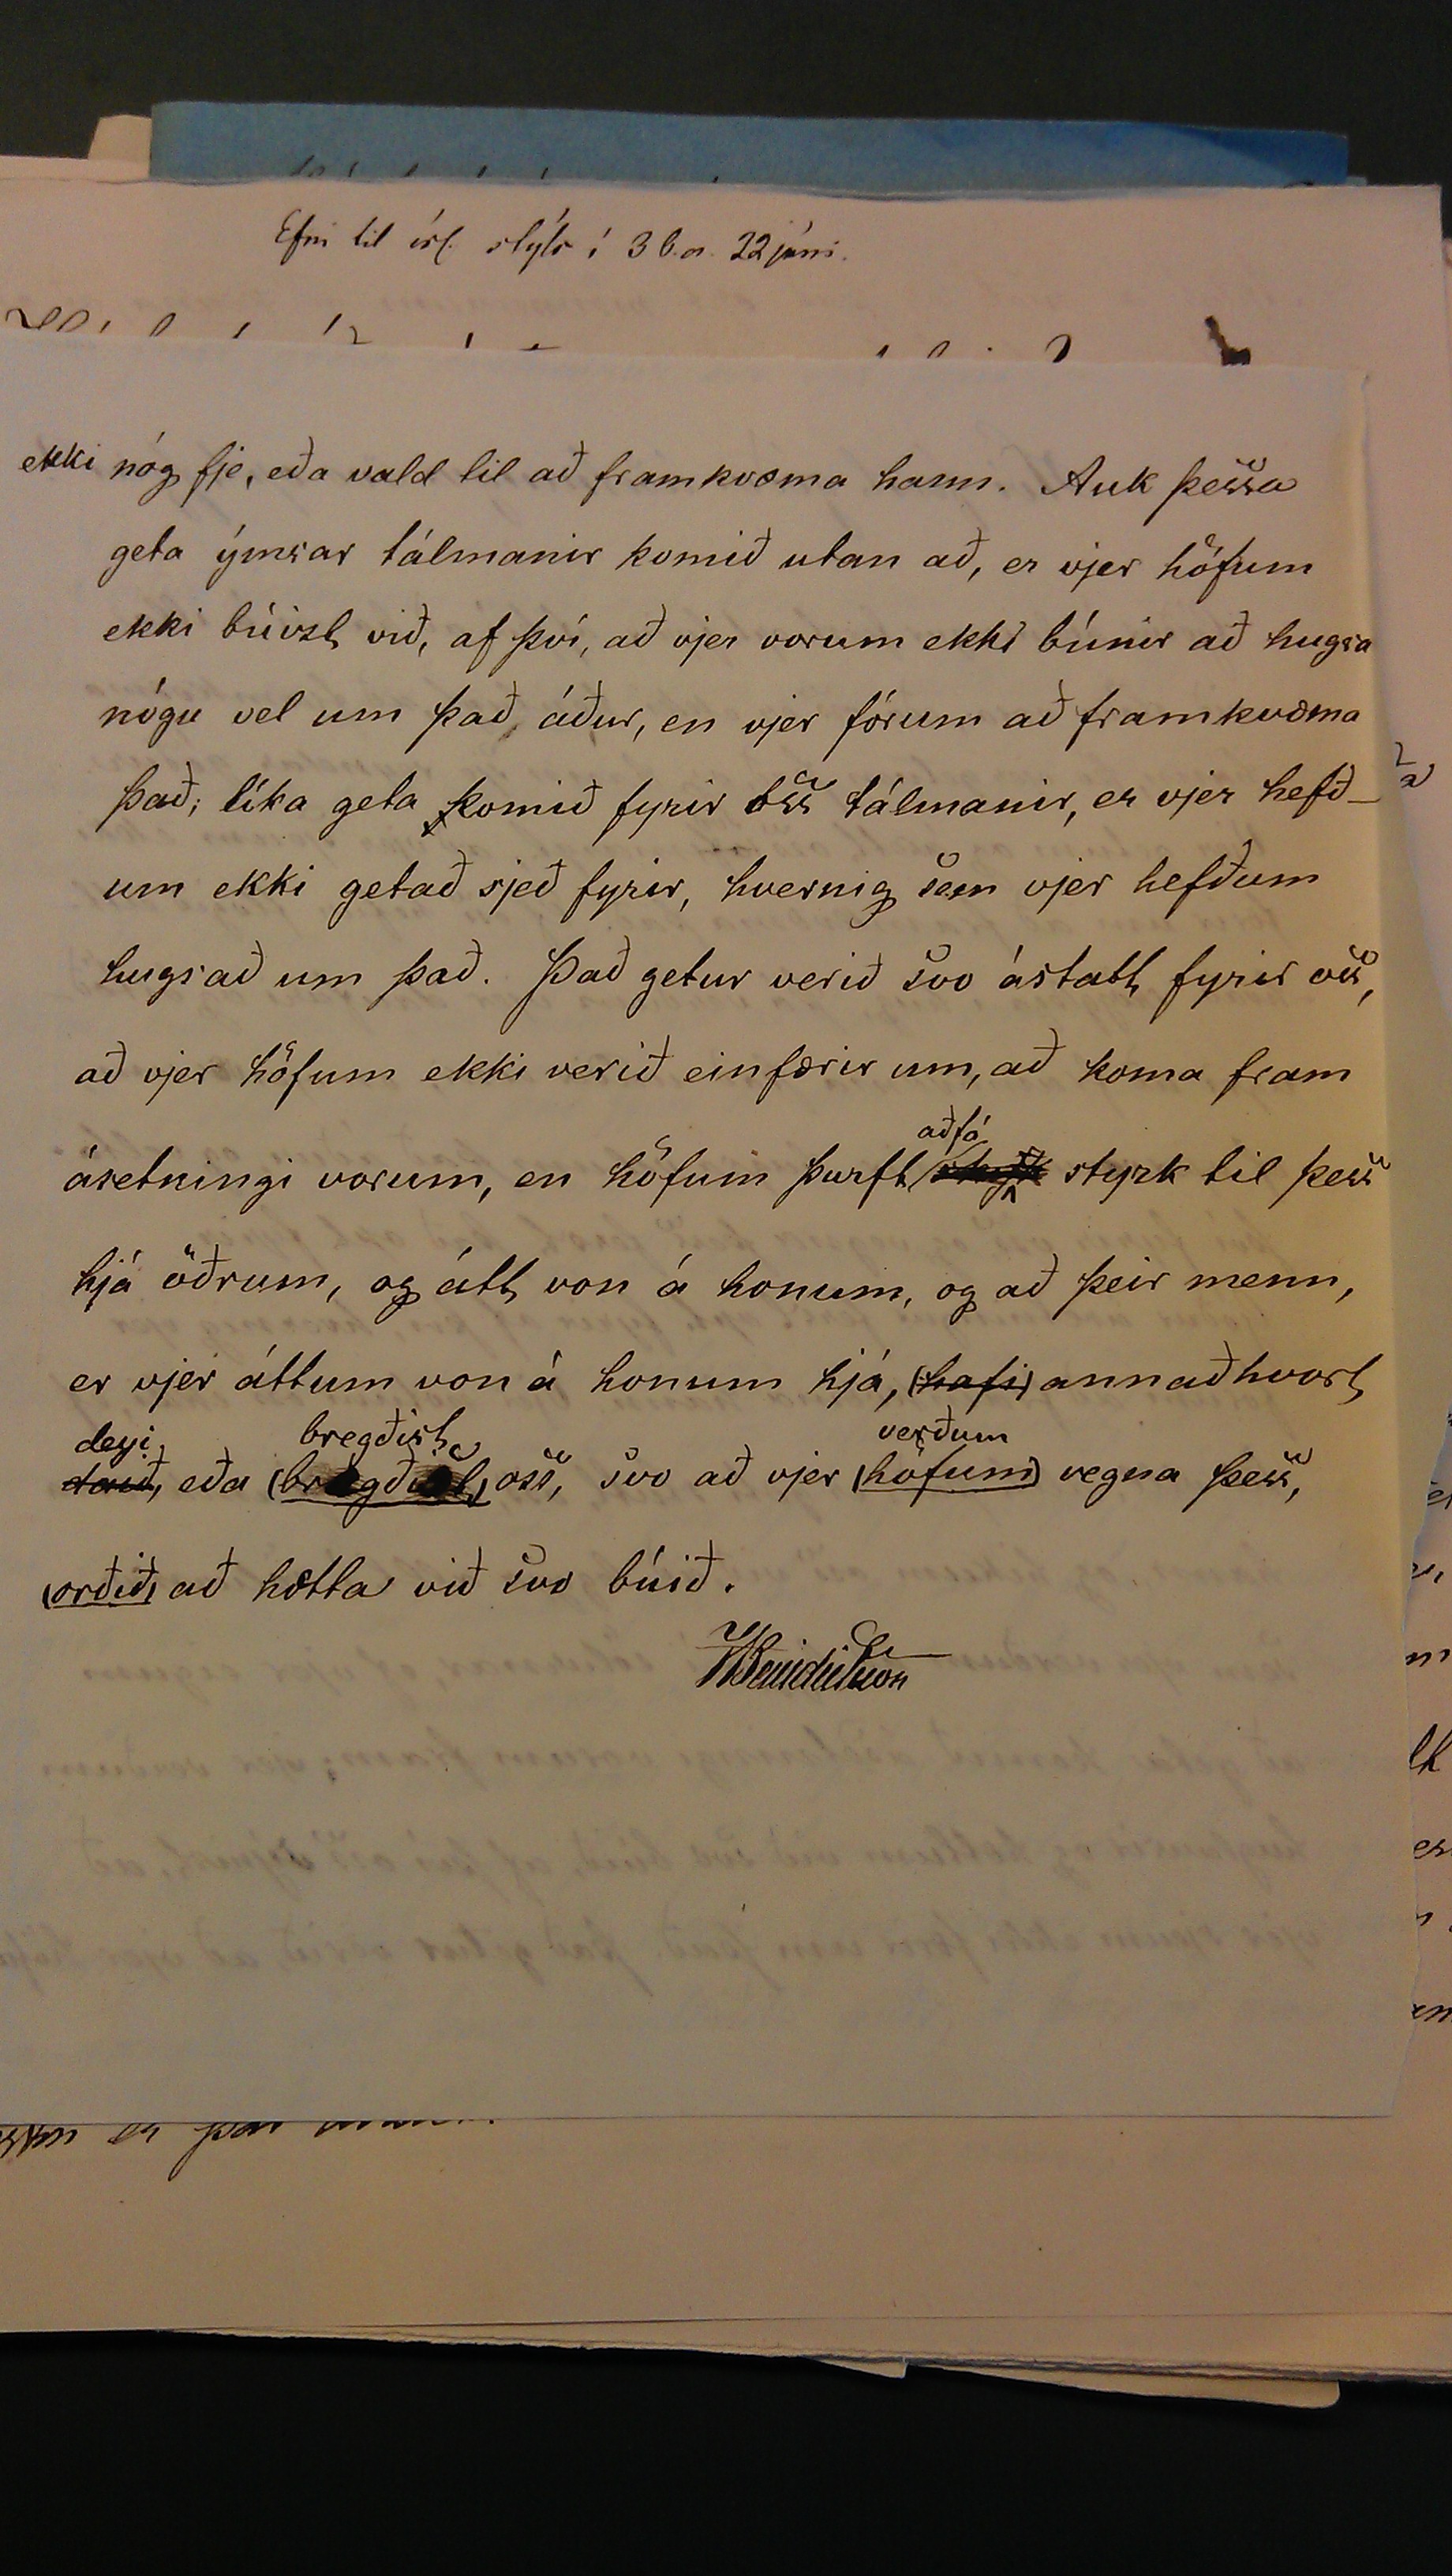 Efni til ísl. stýls í 3 b. a. 22 júni.
ekki nóg fje, eða vald til að framkvæma hann. Auk þessa
geta ýmsar tálmanir komið utan að, er vjer höfum
ekki búizt við, af því, að vjer vorum ekki búnir að hugsa
nógu vel um það, áður, en vjer fórum að framkvæma
það; líka geta komið fyrir oss tálmanir, er vjer hefð-
um ekki getað sjeð fyrir, hvernig sem vjer hefðum
hugsað um það. Það getur verið svo ástatt fyrir oss,
að vjer höfum ekki verið einfærir um, að koma fram
að fá
ásetningi vorum, en höfum þurft styrk til þess
hjá öðrum, og átt von á honum, og að þeir menn,
er vjer áttum von á honum hjá, (hafi) annaðhvort
deyi bregðist verðum
dáið, eða (brugðist) oss, svo að vjer (höfum) vegna þess,
(orðið) að hætta við svo búið.